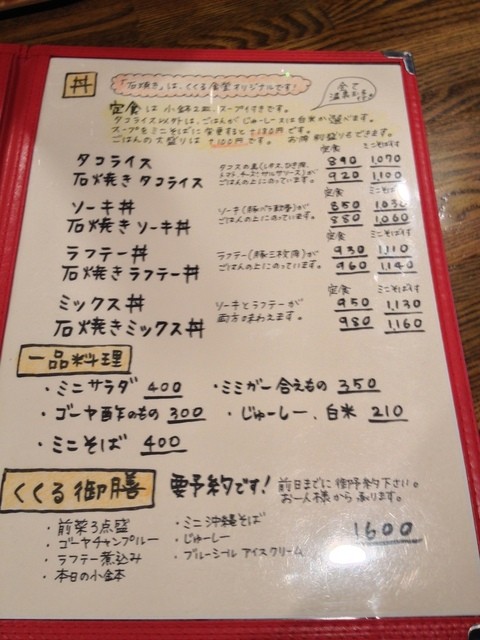 丼
「石焼き」は、くくる食堂オリジナルです!
定食は小鉢2皿、スープ付きです。
タコライス以外は、ごはんがじゅーしースは白米が選べます。
スープをミニそばに変更すると+180円です。
ごはんの大盛りは+100円です。
お持ち
できます。
定食 ミニそばす
タコライス 890 1,070
石焼き タコライス 920 1,100
タコスの具(レタス、ひき肉、
トマト、チーズ、サルサソース)が
ごはんの上にのっています。
定食 ミニそばす
ソーキ丼 850 1,030
石焼き ソーキ丼 880 1,060
ソーキ(豚バラ軟骨)が
ごはんの上にのっています。
定食 ミニそばす
ラフテー丼 930 1,110
石焼きラフテー丼 960 1,140
ラフテー(豚三枚肉)が
ごはんの上にのっています。
定食 ミニそばす
ミックス丼 950 1,130
石焼きミックス丼 980 1,160
ソーキとラフテーが
両方味わえます。
一品料理
・ミニサラダ 400 ・ミミガー合えもの 350
・ゴーヤ酢のもの 300 ・じゅーしー、白米 210
・ミニそば 400
くくる御膳 要予約です! 前日までに御予約下さい。
お一人様から承ります。
・前菜3点盛
・ゴーヤチャンプルー
・ラフテー煮込み
・本日の小鉢
・ミニ沖縄そば
・じゅーしー
・ブルーシールアイスクリーム
1600